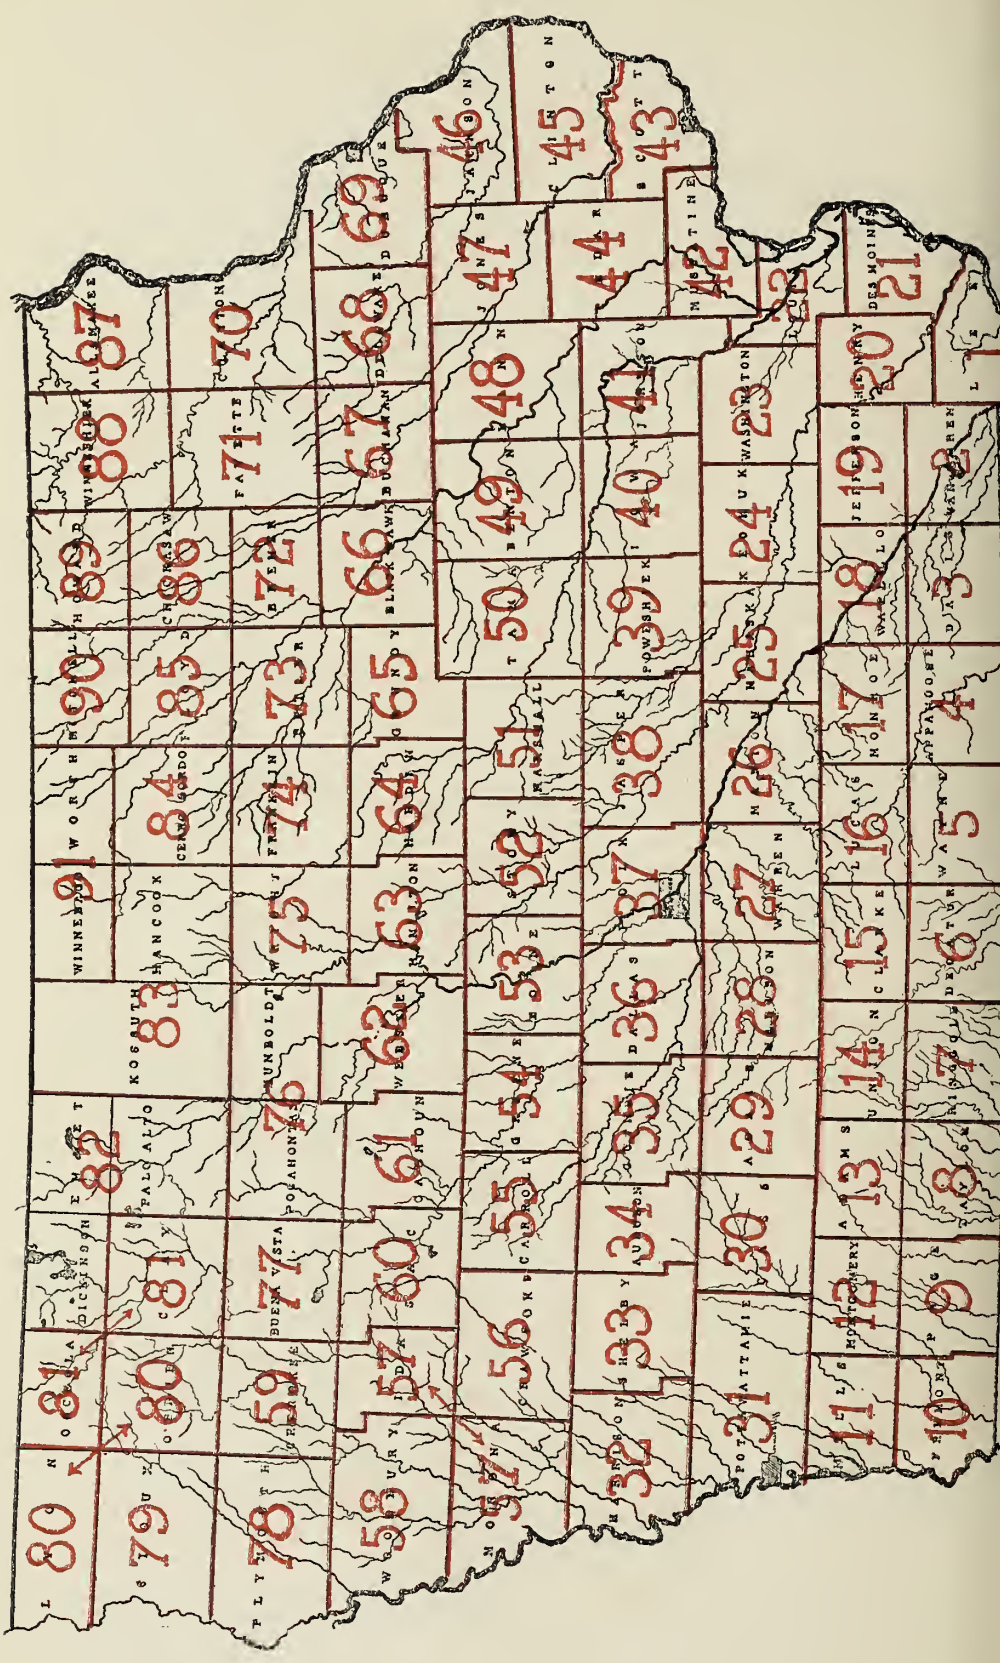 LYON 80
OSCEOLA 81
DICKINSON
EMMET 82
KOSSUTH 83
WINNEBAGO 91
WORTH
MITCHELL 90
HOWARD 89
WINNESHIEK 88
ALLAMAKEE 87
SIOUX 79
O'BRIEN 80
CLAY 81
PALO ALTO
HANCOCK
CERRO GORDO 84
FLOYD 85
CHICKASAW 86
FAYETTE 71
CLAYTON 70
PLYMOUTH 78
CHEROKEE 59
BUENA VISTA 77
POCAHONTAS 76
HUMBOLDT
WRIGHT 75
FRANKLIN 74
BUTLER 73
BREMER 72
WOODBURY 58
IDA 57
SAC 60
CALHOUN 61
WEBSTER 62
HAMILTON 63
HARDIN 64
GRUNDY 65
BLACK HAWK 66
BUCHANAN 67
DELAWARE 68
DUBUQUE 69
MONONA 57
CRAWFORD 56
CARROLL 55
GREENE 54
BOONE 53
STORY 52
MARSHALL 51
TAMA 50
BENTON 49
LINN 48
JONES 47
JACKSON 46
CLINTON 45
CEDAR 44
SCOTT 43
HARRISON 32
SHELBY 33
AUDUBON 34
GUTHRIE 35
DALLAS 36
POLK 37
JASPER 38
POWESHIEK 39
IOWA 40
JOHNSON 41
MUSCATINE 42
POTTAWATTAMIE 31
CASS 30
ADAIR 29
MADISON 28
WARREN 27
MARION 26
MAHASKA 25
KEOKUK 24
WASHINGTON 23
LOUISA 22
MILLS 11
MONTGOMERY 12
ADAMS 13
UNION 14
CLARKE 15
LUCAS 16
MONROE 17
WAPELLO 18
JEFFERSON 19
HENRY 20
DES MOINES 21
FREMONT 10
PAGE 9
TAYLOR 8
RINGGOLD 7
DECATUR 6
WAYNE 5
APPANOOSE 4
DAVIS 3
VAN BUREN 2
LEE 1